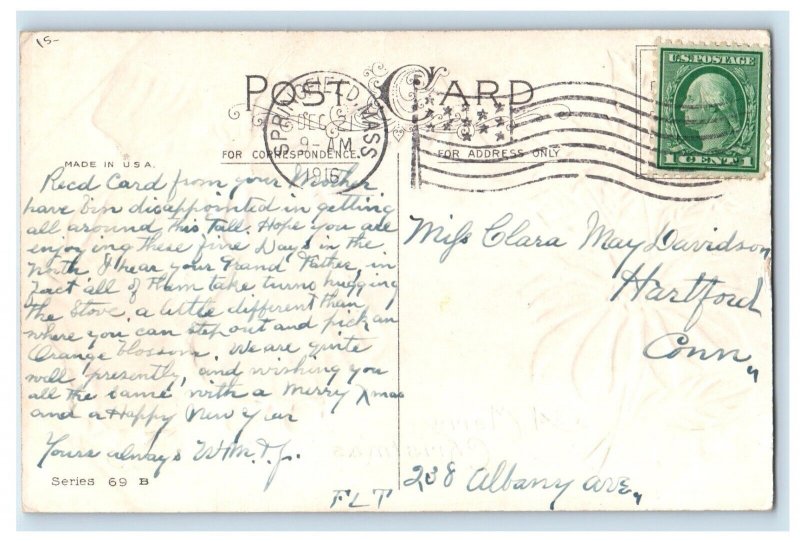 15-
POST CARD
SPRINGFIELD, MASS
DEC 21
9-AM
1916
U.S. POSTAGE
1 CENT 1
FOR CORRESPONDENCE.
FOR ADDRESS ONLY
MADE IN U.S.A.
Recd Card from your Mother
have bin disappointed in getting
all around this Fall. Hope you are
enjoying these fine Days in the
North I hear your Grand Father, in
Fact all of them take turns hugging
the Stove. a little different then
where you can step out and pick an
Orange blossom. We are quite
well presently, and wishing you
all the same with a Merry Xmas
and a Happy New Year
Yours always
Series 69 B
FLT
Miss Clara May Davidson
Hartford
Conn "
238 Albany ave "